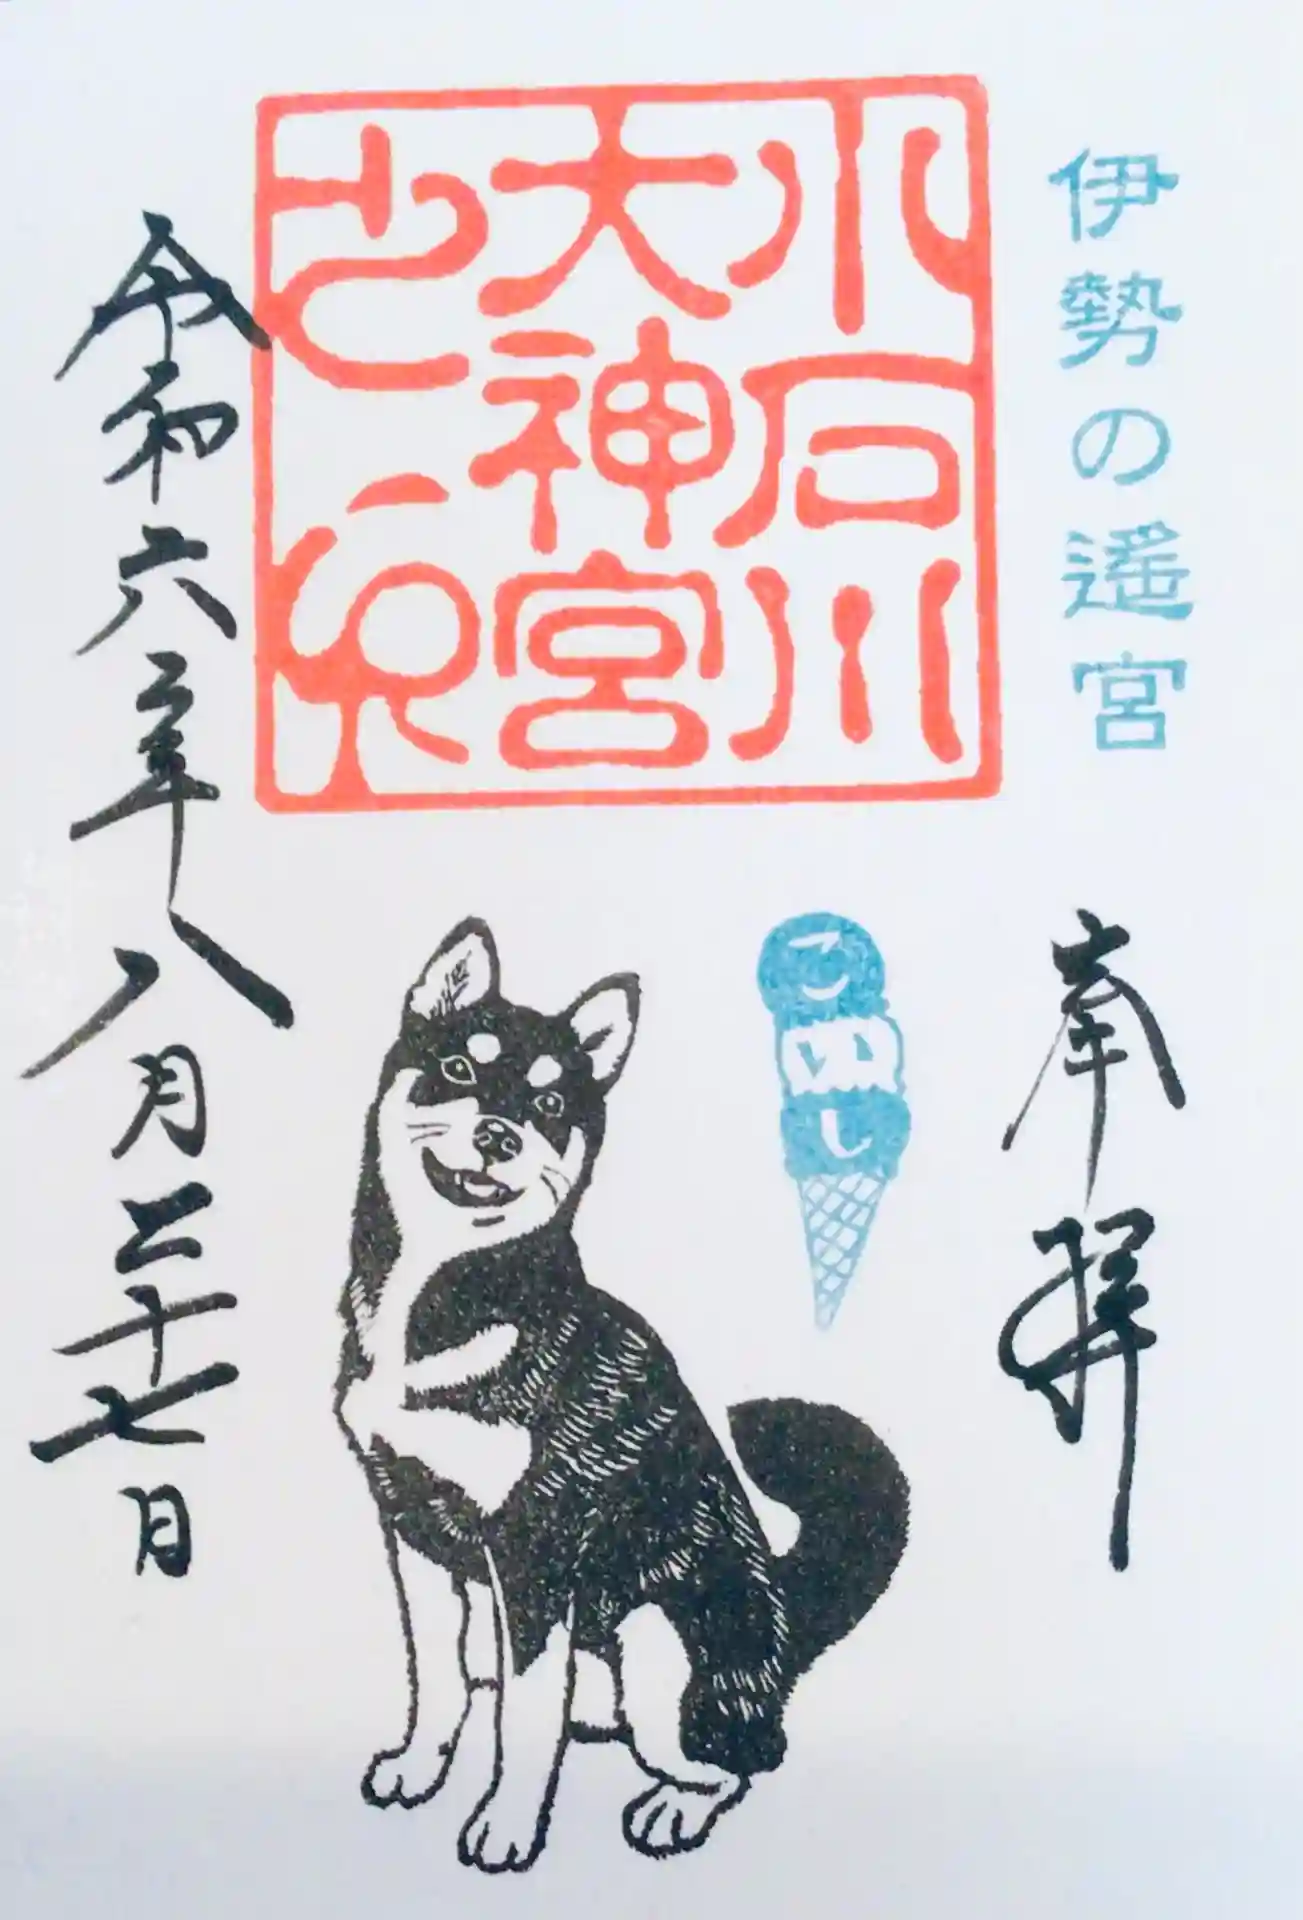 伊勢の遥宮
奉拝
小石川
大神宮
之印
こいし
令和六年八月二十七日